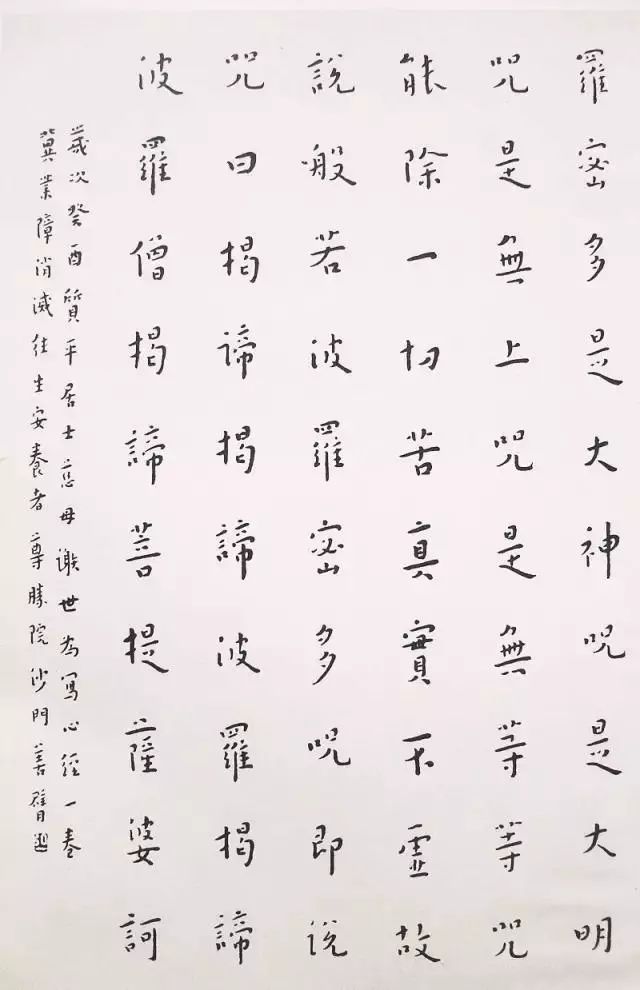 羅密多是大神咒是大明
咒是無上咒是無等等咒
能除一切苦真實不虛故
說般若波羅密多咒即說
咒曰揭諦揭諦波羅揭諦
波羅僧揭諦菩提薩婆訶
歲次癸酉質平居士母謝世為寫心經一卷
冀業障消滅往生安養者尊勝院沙門善臂